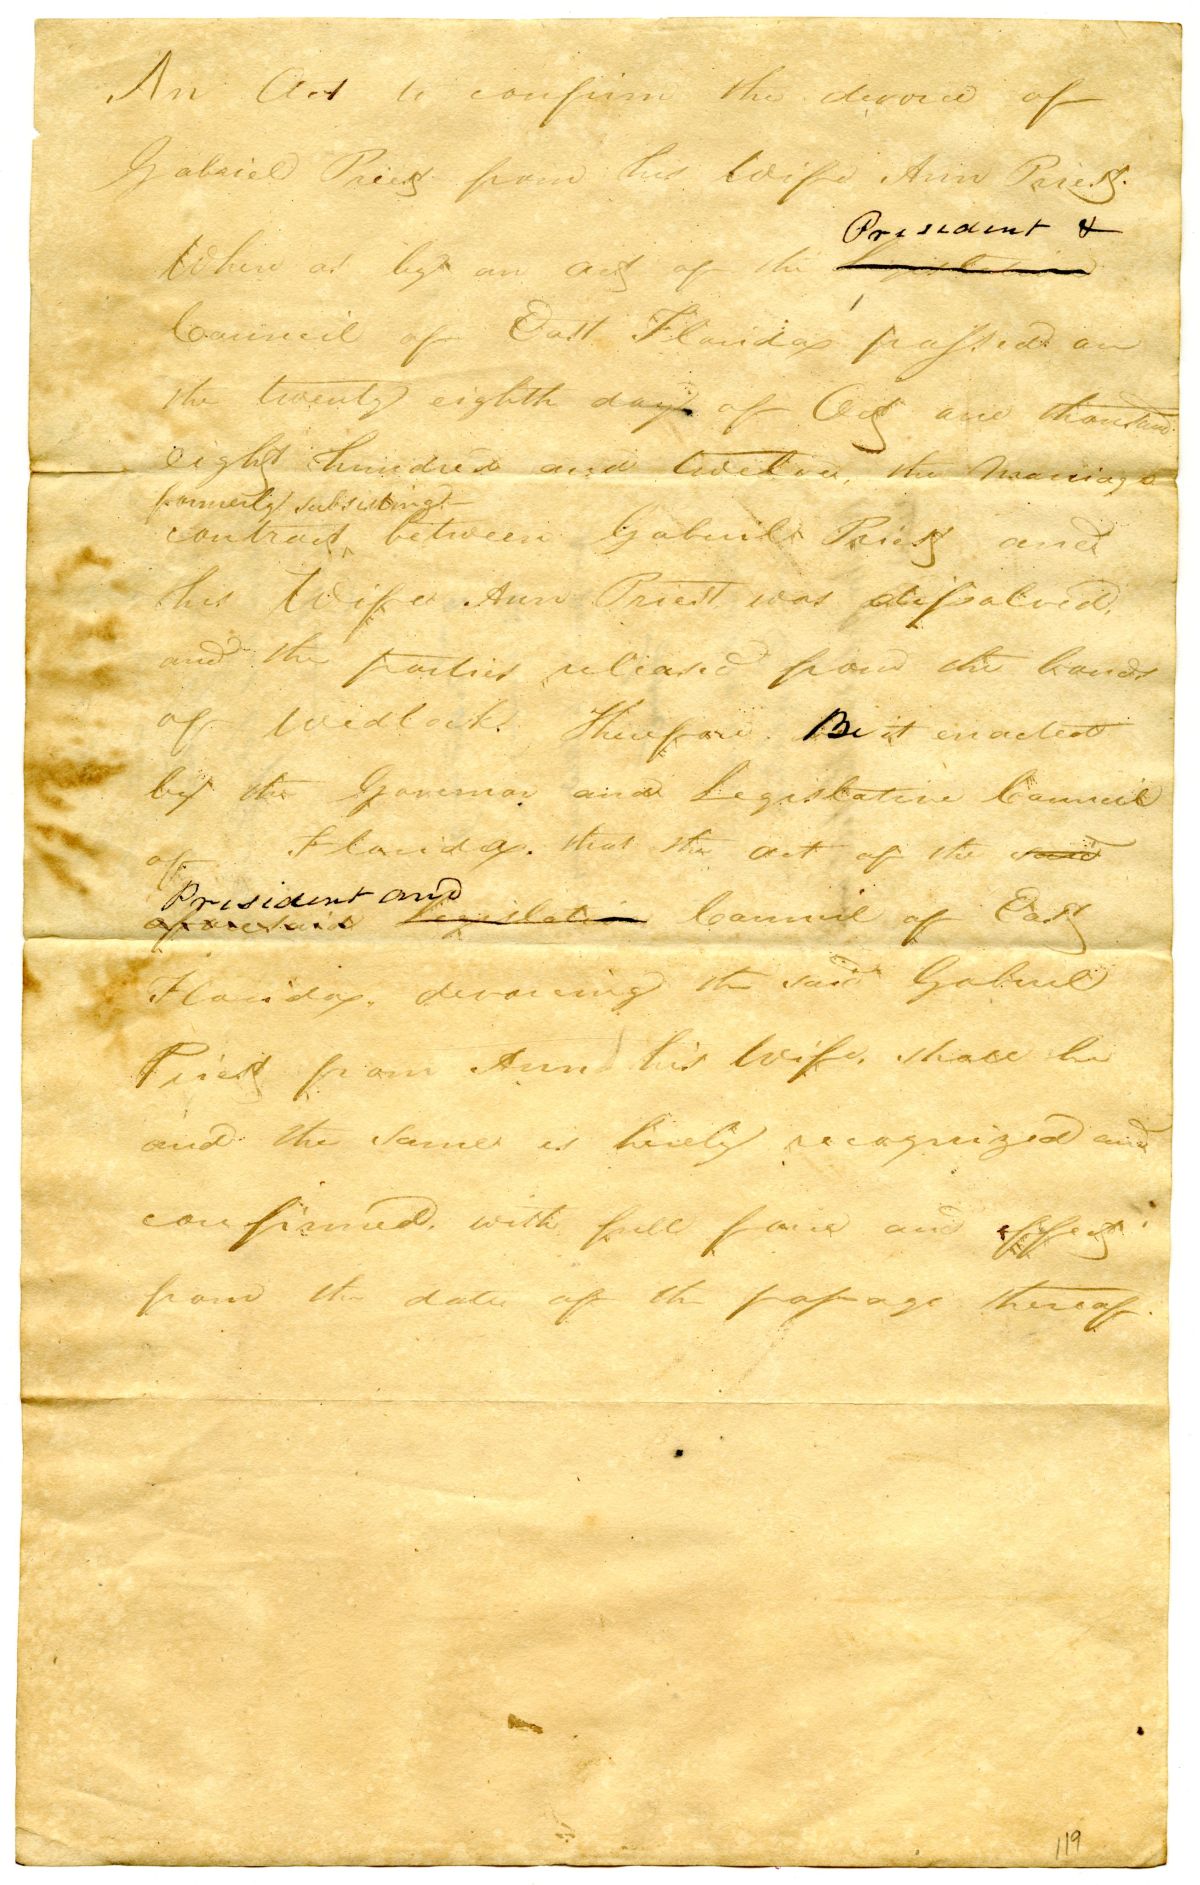 An Act to confirm the devorce of
Gabriel Priest from his Wife Ann Priest.
President &
Where as by an act of the Legislative
Council of East Florida passed on
the twenty eighth day of Oct one thousand
eight hundred and twelve, the marriage
formerly subsisting
contract between Gabriel Priest and
his Wife Ann Priest was dissolved,
and the parties released from the bonds
of Wedlock. Therefore. Be it enacted
by the Governor and Legislative Council
of Florida. that the act of the said
President and
aforesaid Legislative Council of East
Florida, devorcing the said Gabriel
Priest from Ann his Wife, shall be
and the same is hereby recognized and
confirmed. with full force and effect
from the date of the passage thereof.
119